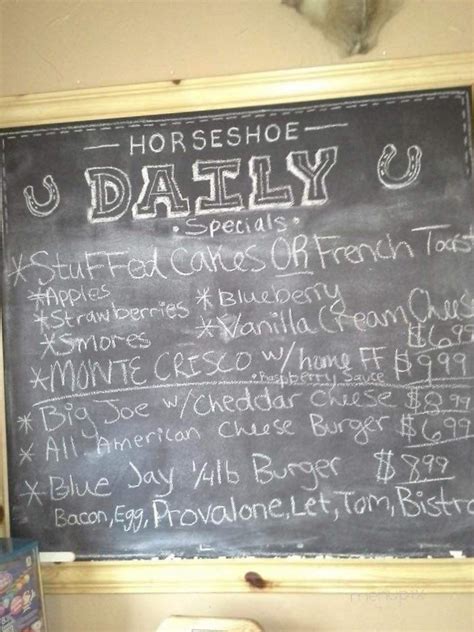 HORSESHOE
DAILY
• Specials •
* Stuffed Cakes OR French Toast
* Apples
* Blueberry
* Strawberries
* Vanilla Cream Chees
* Smores
$6.99
* MONTE CRISCO w/ home FF $9.99
+ Raspberry Sauce
* Big Joe w/ Cheddar Cheese $8.99
* All American Cheese Burger $6.99
* Blue Jay 1/4 lb Burger $8.99
Bacon, Egg, Provalone, Let, Tom, Bistro
menupix